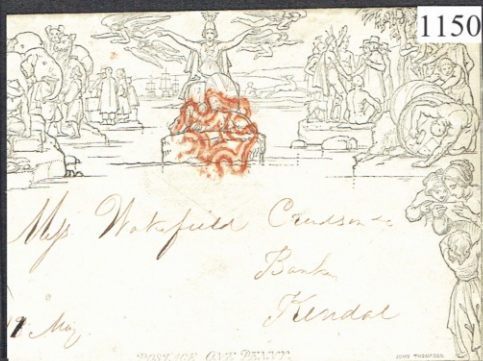 1150
Mess Wakefield Crewdson &c
Bank
Kendal
19 May
POSTAGE ONE PENNY.
JOHN THOMPSON